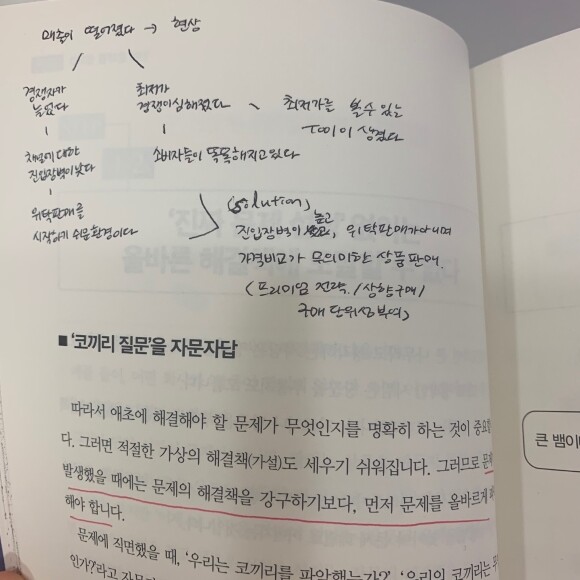 매출이 떨어졌다 → 현상
경쟁자가
늘었다
최저가
경쟁이 심해졌다
최저가를 볼 수 있는
Tool이 생겼다
채널에 대한
진입장벽이 낮다
소비자들이 똑똑해지고 있다
위탁판매를
시작하기 쉬운 환경이다
(solution)
진입장벽이 높고, 위탁판매가 아니며
가격비교가 무의미한 상품판매.
(프리미엄 전략 / 상향구매 /
구매 단위상
■ '코끼리 질문'을 자문자답
따라서 애초에 해결해야 할 문제가 무엇인지를 명확히 하는 것이 중요
다. 그러면 적절한 가상의 해결책(가설)도 세우기 쉬워집니다. 그러므로
발생했을 때에는 문제의 해결책을 강구하기보다, 먼저 문제를 올바르게
해야 합니다.
문제에 직면했을 때, '우리는 코끼리를 파악했는가?', '우리의 코끼리는
인가?'라고 자문
큰 뱀이